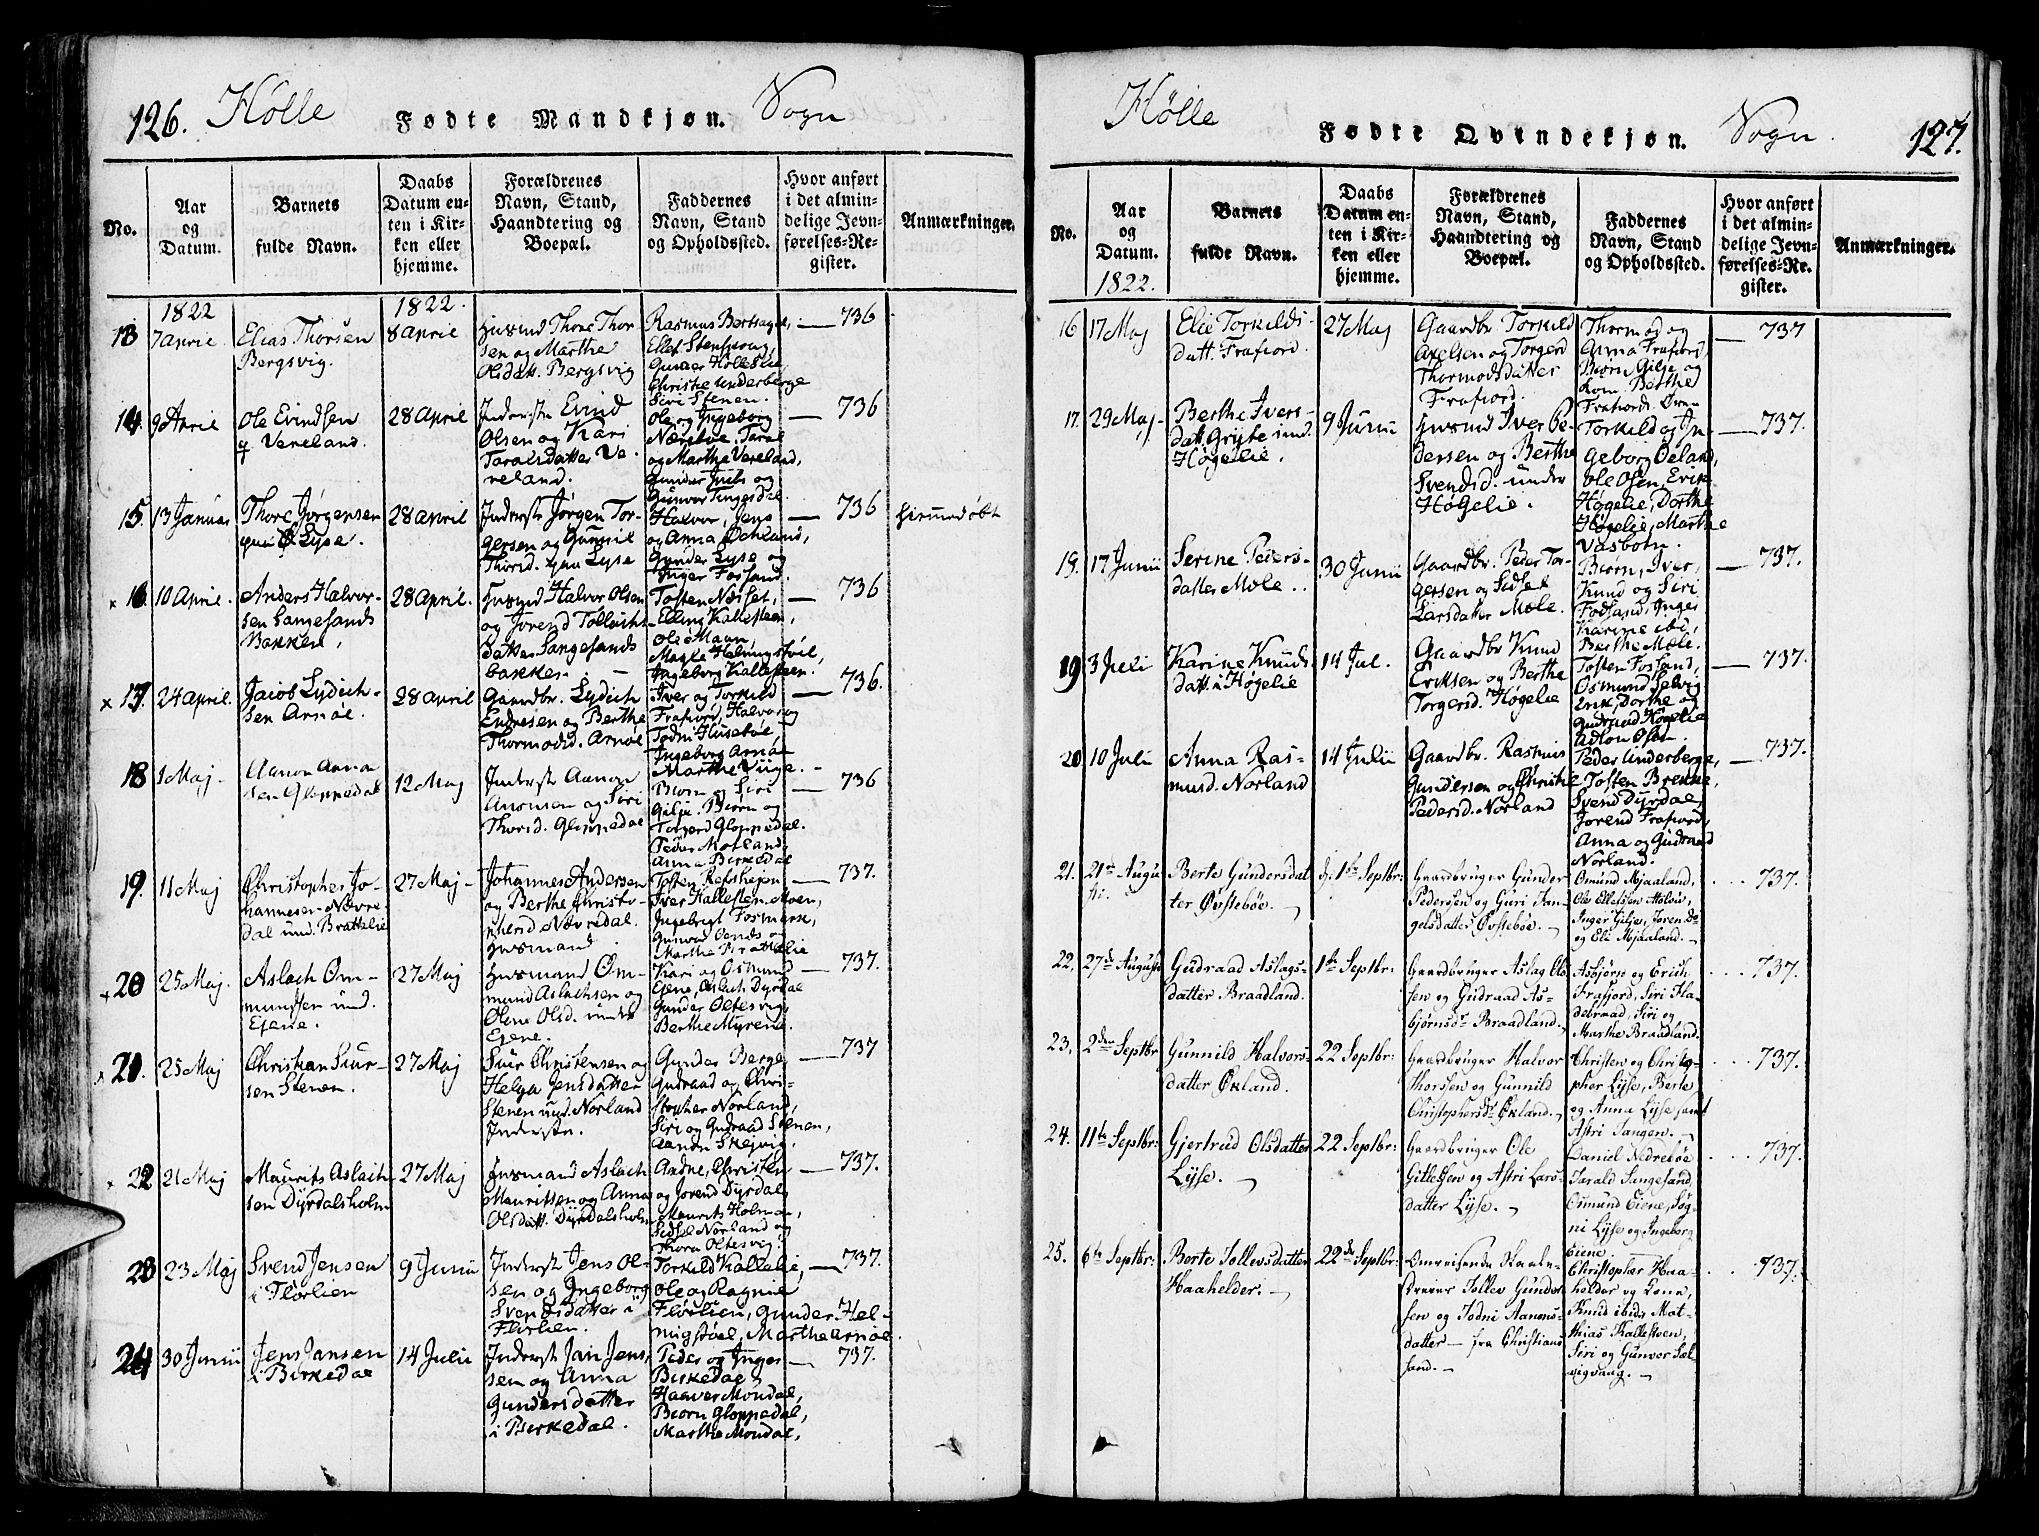 126. Hølle Fødte Mandkjøn. Sogn
No.
Aar
og
Datum.
Barnets
fulde Navn.
Daabs
Datum en-
ten i Kir-
ken eller
hjemme.
Forældrenes
Navn, Stand,
Haandtering og
Boepæl.
Faddernes
Navn, Stand
og Opholdssted.
Hvor anført
i det almin-
delige Jevn-
førelses-Re-
gister.
Anmærkninger.
1822
1822.
13
7 April
Elias Thorsen
Bergsvig.
8 April
Husmd Thore Thor
sen og Marthe
Olsdatt. Bergsvig
Rasmus
Gunner Holleslie
Christie Underberge
Siri Stenen.
736
14.
9 April
Ole Evindsen
Vereland.
28 April
Inderste Evind
Olsen og Kari
Taralsdatter Ve
reland.
Ole og Ingeborg
Næsbøe, Taral
og Marthe Vereland,
Gunder og
736
15
13 Januar
Thore Jørgensen
Lyse.
28 April
Inderste Jørgen Tor-
gersen og Gunnil
Thorsd. Lyse
Halvor, Jens
og Anna Øchland,
Gunder Lyse og
Inger Fossand.
736
hiemedøbt
x 16
10 April.
Anders Halvor-
sen Sangesands
Bakken,
28 April.
Husmd Halvor Olsen
og Jorend
datter Sangesands
bakken.
Tosten Næsset,
Elling Kallesteen,
Ole Maan,
Ingeborg Kallesteen.
736
x 17.
24 April.
Jacob Lydich-
sen Arnøe.
28 April
Gaardbr. Lydich
Endresen og Berthe
Thormodsd. Arnøe
Iver og Torkild
Frafiord, Halvor og
Todni Husebøe,
Ingeborg Arnøe
736.
18
1 Maj
Aanon Aanon
sen Gloppedal
12 Maj
Inderste Aanon
Ansmon og Siri
Thorsd. Gloppedal
Marthe Viige.
Biørn og Siri
Gilje. Biørn og
Torgerd Gloppedal.
Peder Motland,
Anna Birkedal
736
19.
11 Maj
Christopher Jo-
hannesen Nævre
dal und. Brattelie
27 Maj
Johannes Andersen
og Berthe Christo-
phersd. Nævredal
Husmand
Tosten Refsheien
Iver Kallesten, Moen,
Ingebrigt Fosmark,
Marthe Brattelie
737.
20
25 Maj.
Aslach Om-
mundsen und.
Eiene.
27 Maj
Husmand Om-
mund Aslachsen og
Olene Olsd. under
Eiene.
Kari og Osmund
Eiene, Aslach Dyrdal
Gunder Oltesvig,
Berthe Myrene.
737.
x 21.
25 Maj
Christian Siur-
sen Stenen.
27 Maj
Siur Christensen og
Helga Jensdatter
Stenen und. Norland
Inderste.
Gunder Berge,
Gudraad og Chri-
stopher Norland,
Siri og Gudraad Stenen,
737
x 22
21 Maj
Maurits Aslach-
sen Dyrdalsholm
27 Maj
Husmand Aslach
Mauritsen og Anna
Olsdatt. Dyrdalsholm
Andne, Christen
og Jorend Dyrdal,
Maurits Holmen,
Sidsel Norland og
Thora Oltesvig.
737.
23
23 Maj
Svend Jensen
i Flørlien
9 Junii
Inderste Jens Ol-
sen og Ingeborg
Svendsdatter i
Flørlien.
Torkild Kallelie,
Ole og Ragnie
Flørlien, Gunder Hel-
migstøel, Marthe Arnøe.
737.
24
30 Junii
Jens Jansen
i Birkedal
14 Julii
Inderste Jan Jens-
sen og Anna
Gundersdatter
i Birkedal.
Peder og Inger
Birkedal,
Haaver Mondal,
Biørn Gloppedal,
Marthe Mondal,
737.
Hølle Fødte Qvindekjøn. Sogn. 127.
No.
Aar
og
Datum.
1822.
Barnets
fulde Navn.
Daabs
Datum en-
ten i Kir-
ken eller
hjemme.
Forældrenes
Navn, Stand,
Haandtering og
Boepæl.
Faddernes
Navn, Stand
og Opholdssted.
Hvor anført
i det almin-
delige Jevn-
førelses-Re-
gister.
Anmærkninger.
16
17 Maj
Elie Torkilds-
datt. Frafiord.
27 Maj
Gaardbr. Torkild
Axelsen og Torgerd
Thormodsdatter
Frafiord.
Thormod og
Anna Frafiord,
Biørn Gilje og
Berthe
Frafiord.
737
17.
29 Maj
Berthe Ivers-
datt. Gryte und.
Høgelie.
9 Junii
Husmd Iver Pe-
dersen og Berthe
Svendsd. under
Høgelie.
Torkild og In-
geborg Øeland,
Ole Olsen, Erik
Høgelie, Dorthe
Høgelie, Marthe
Vasbotn.
737.
18.
17 Junii
Serine Peders-
datter Mæle.
30 Junii
Gaardbr. Peder Tor-
gersen og Sidsel
Larsdatter Mæle.
Biørn, Iver,
Knud og Siri
Fossand, Inger
Karine ibi,
Berthe Mæle.
737.
19
3 Juli
Karine Knuds-
datt. i Høgelie
14 Jul.
Gaardbr Knud
Eriksen og Berthe
Torgersd. Høgelie
Tosten Fosand,
Osmund Selvig
Erik, Dorthe og
Gudraad Høgelie
737.
20
10 Juli
Anna Ras-
musd. Norland
14 Julii
Gaardbr. Rasmus
Gundersen og Christie
Pedersd. Norland
Peder Underberge,
Tosten Brekke,
Svend Dyrdal,
Jorend Frafiord,
Anna og Gudraad
Norland.
737.
21.
21de Augu
sti.
Berte Gundersdat
ter Øvstebøe.
d. 1te Septbr:
Gaardbruger Gunder
Pedersen og Guri Tan-
gelsdatter Øvstebøe.
Osmund Mjaaland,
Ole Ellefsen Molvig,
Inger Gilje, Joren do
og Eli Mjaaland.
737.
22.
27de August
Gudraad Aslags-
datter Braadland.
1te Septbr:
Gaardbruger Aslag Ols
sen og Gudraad As-
bjørnsdr Braadland.
Asbjørn og Erich
Frafjord, Siri Fla-
debraad, Siri og
Marthe Braadland.
737.
23.
2den Septbr
Gunnild Halvors-
datter Økland.
22 Septbr:
Gaardbruger Halvor
Thorssen og Gunnild
Christophersdr Økland.
Christen og Christo-
pher Lyse, Berte
og Anna Lyse, samt
Astri Sangen.
737.
24.
11te Septbr:
Gjertrud Olsdatter
Lyse.
22 Septbr:
Gaardbruger Ole
Gittelsen og Astri Lars-
datter Lyse.
Daniel Nedrebøe
Tarald Sangesand,
Osmund Eiene, Søg-
ni Lyse og Ingeborg
Eiene
737.
25.
6te Septbr:
Berte Tollevsdatter
Haahelder.
22de Septbr:
Omreisende Skade-
Tollev Gunder-
sen og Todni Aanens
datter – fra Christians
sand.
Christopher Haa-
helder og Lena,
Knud ibid, Mat-
thias Kallesteen,
Siri og Gunvor Sæl-
vigvaag.
737.